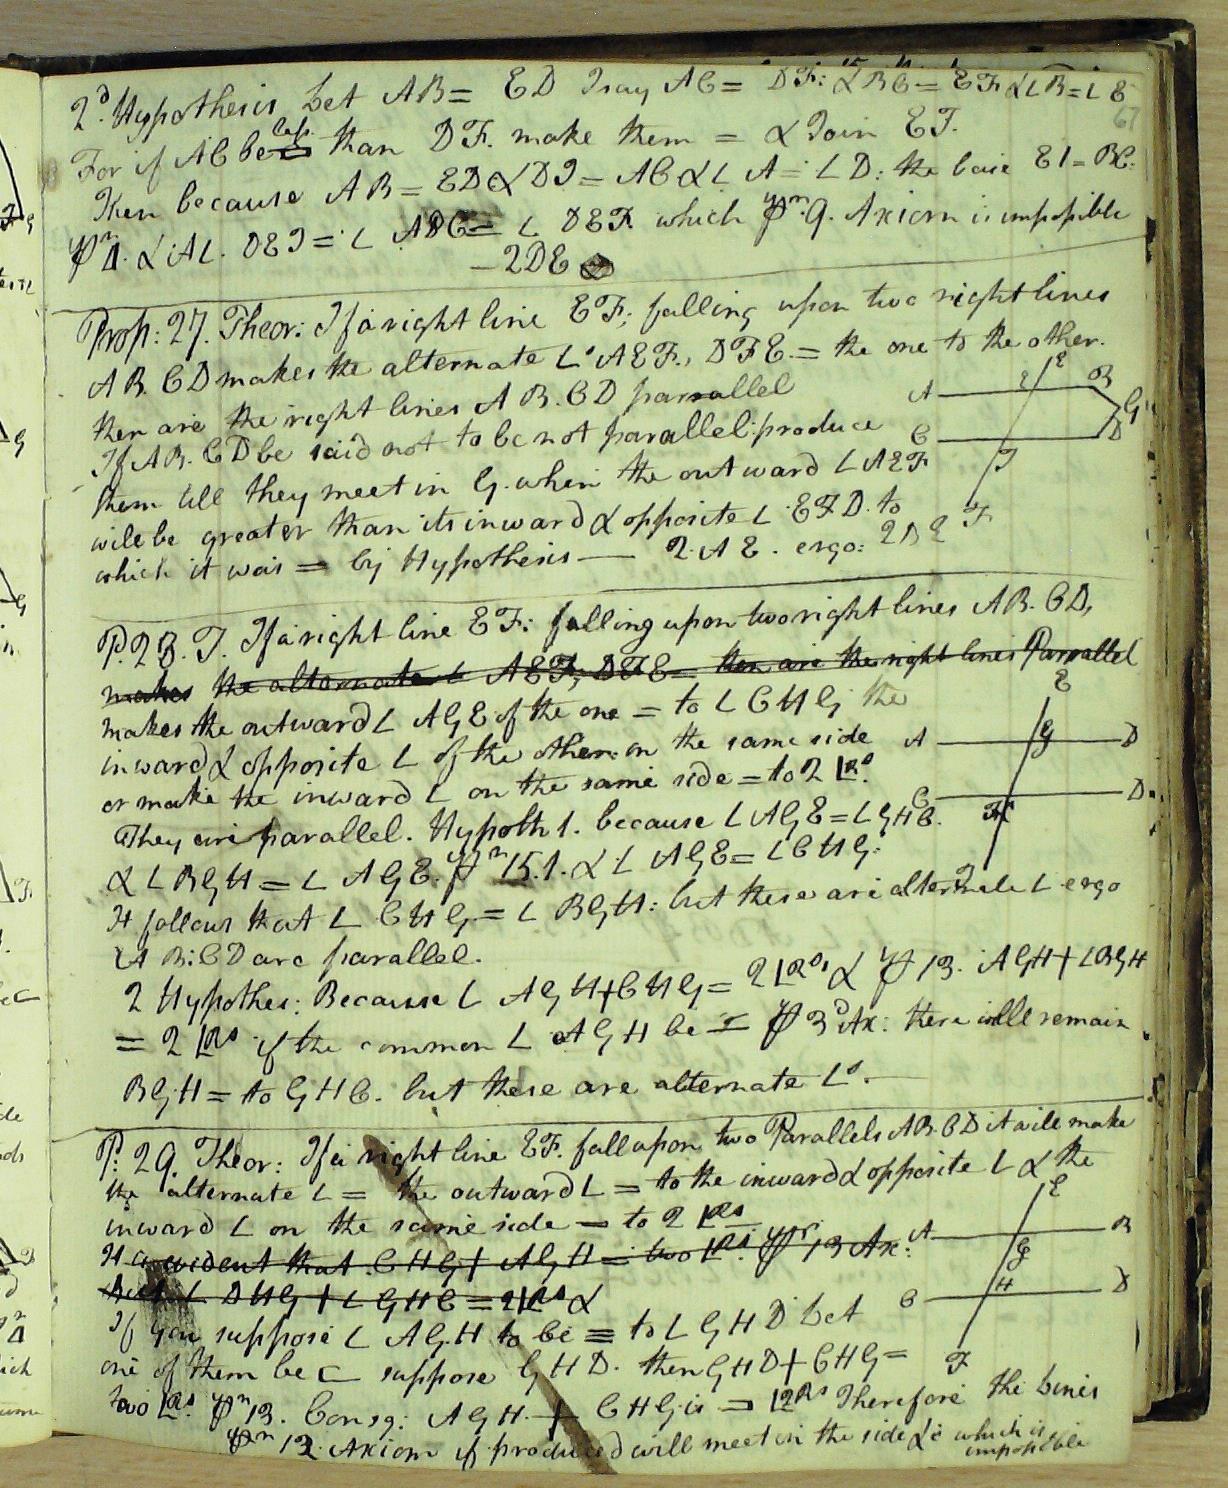 2d. Hypothesis Let AB = ED I say AC = DF: & BC = EF & ∠B = ∠E
67
For if AC be less than DF. make them = & Join EI.
Then because AB = ED & DI = AC & ∠ A = ∠ D: the base EI = BC.
pn 4. & AL. DEI = ∠ ABC = ∠ DEF. which pn. 9. Axiom is impossible
— 2DE
Prop: 27. Theor: If a right line EF; falling upon two right lines
AB. CD makes the alternate ∠s AEF., DFE. = the one to the other.
then are the right lines AB. CD parrallel
If AB. CD be said not to be not parallel: produce
them till they meet in G. when the outward ∠ AEF
will be greater than its inward & opposite ∠ EFD. to
which it was = by Hypothesis — 2. A E. ergo: 2DE
A E B
C D G
F
P. 28. T. If a right line EF: falling upon two right lines AB. CD,
makes the alternate ∠ AEF, DFE = then are the right lines Parrallel
makes the outward ∠ AGE of the one = to ∠ CHG the
inward & opposite ∠ of the other: on the same side
or make the inward ∠ on the same side = to 2 ∟Rs.
They are parallel. Hypoth 1. because ∠ AGE = ∠ GHC.
& ∠ BGH = ∠ AGE. pn 15.1. & ∠ AGE = ∠ CHG:
It follows that ∠ CHG = ∠ BGH: but these are alternate ∠ ergo
AB: CD are parallel.
E
A G D
C H D
2 Hypothes: Because ∠ AGH + CHG = 2 ∟Rs, & p 13. AGH + ∠BGH
= 2 ∟Rs if the common ∠ AGH be = p 3d Ax: there will remain
BGH = to GHC. but these are alternate ∠s. —
P: 29. Theor: If a right line EF. fall upon two Parallels AB. CD it will make
the alternate ∠ = the outward ∠ = to the inward & opposite ∠ & the
inward ∠ on the same side = to 2 ∟Rs
It is evident that CHG + AGH = two ∟Rs pr 13 Ax:
But ∠ DHG + ∠ GHC = 2∟Rs &
If you suppose ∠ AGH to be = to ∠ GHD let
one of them be ⊏ suppose GHD. then GHD + CHG =
two ∟Rs. pn 13. Consq: AGH. + CHG is = 2∟Rs Therefore the Lines
pn 12. Axiom if produced will meet in the side &c which is
impossible
E
A G B
C H D
F